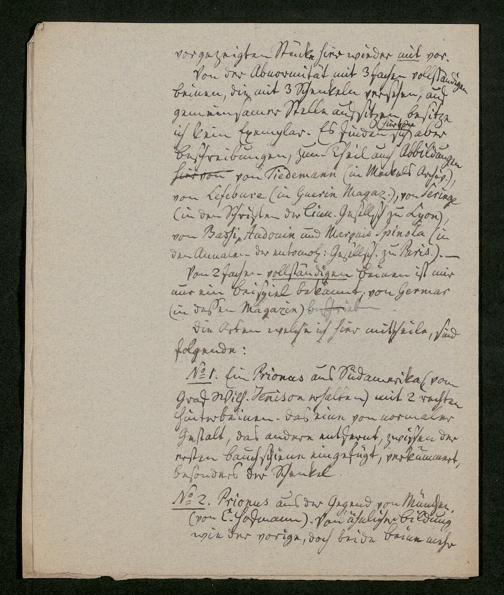 vorgezeigten Stücke hier wieder mit vor.
Von der Abnormität mit 3fachen vollständigen
Beinen, die mit 3 Schenkeln versehen, auf
gemeinsamer Stelle aufsitzen, besitze
ich kein Exemplar. Es finden sich aber
Beschreibungen, zum Theil auch Abbildungen
hiervon von Tiedemann (in Meckels Archiv),
von Lefebure (in Guerin Magaz.), von Seringe
(in den Schriften der Linn. Gesellsch zu Lyon),
von Bassi, Audouin und Marquis Spinola (in
den Annalen der entomol: Gesellsch. zu Paris). —
Von 2fachen vollständigen Beinen ist mir
nur ein Beispiel bekannt, von Germar
(in dessen Magazin) beschrieb
Die Arten welche ich hier mittheile, sind
folgende:
No 1. Ein Prionus aus Südamerika (von
Graf Jenison erhalten) mit 2 rechten
Hinterbeinen. das eine von normaler
Gestalt, das andere entfernt, zwischen der
ersten Bauchschiene eingefügt, verkümmert,
besonders der Schenkel
No 2. Prionus aus der Gegend von München.
(von C.). Von ähnlicher Bildung
wie der vorige, doch beide Beine mehr